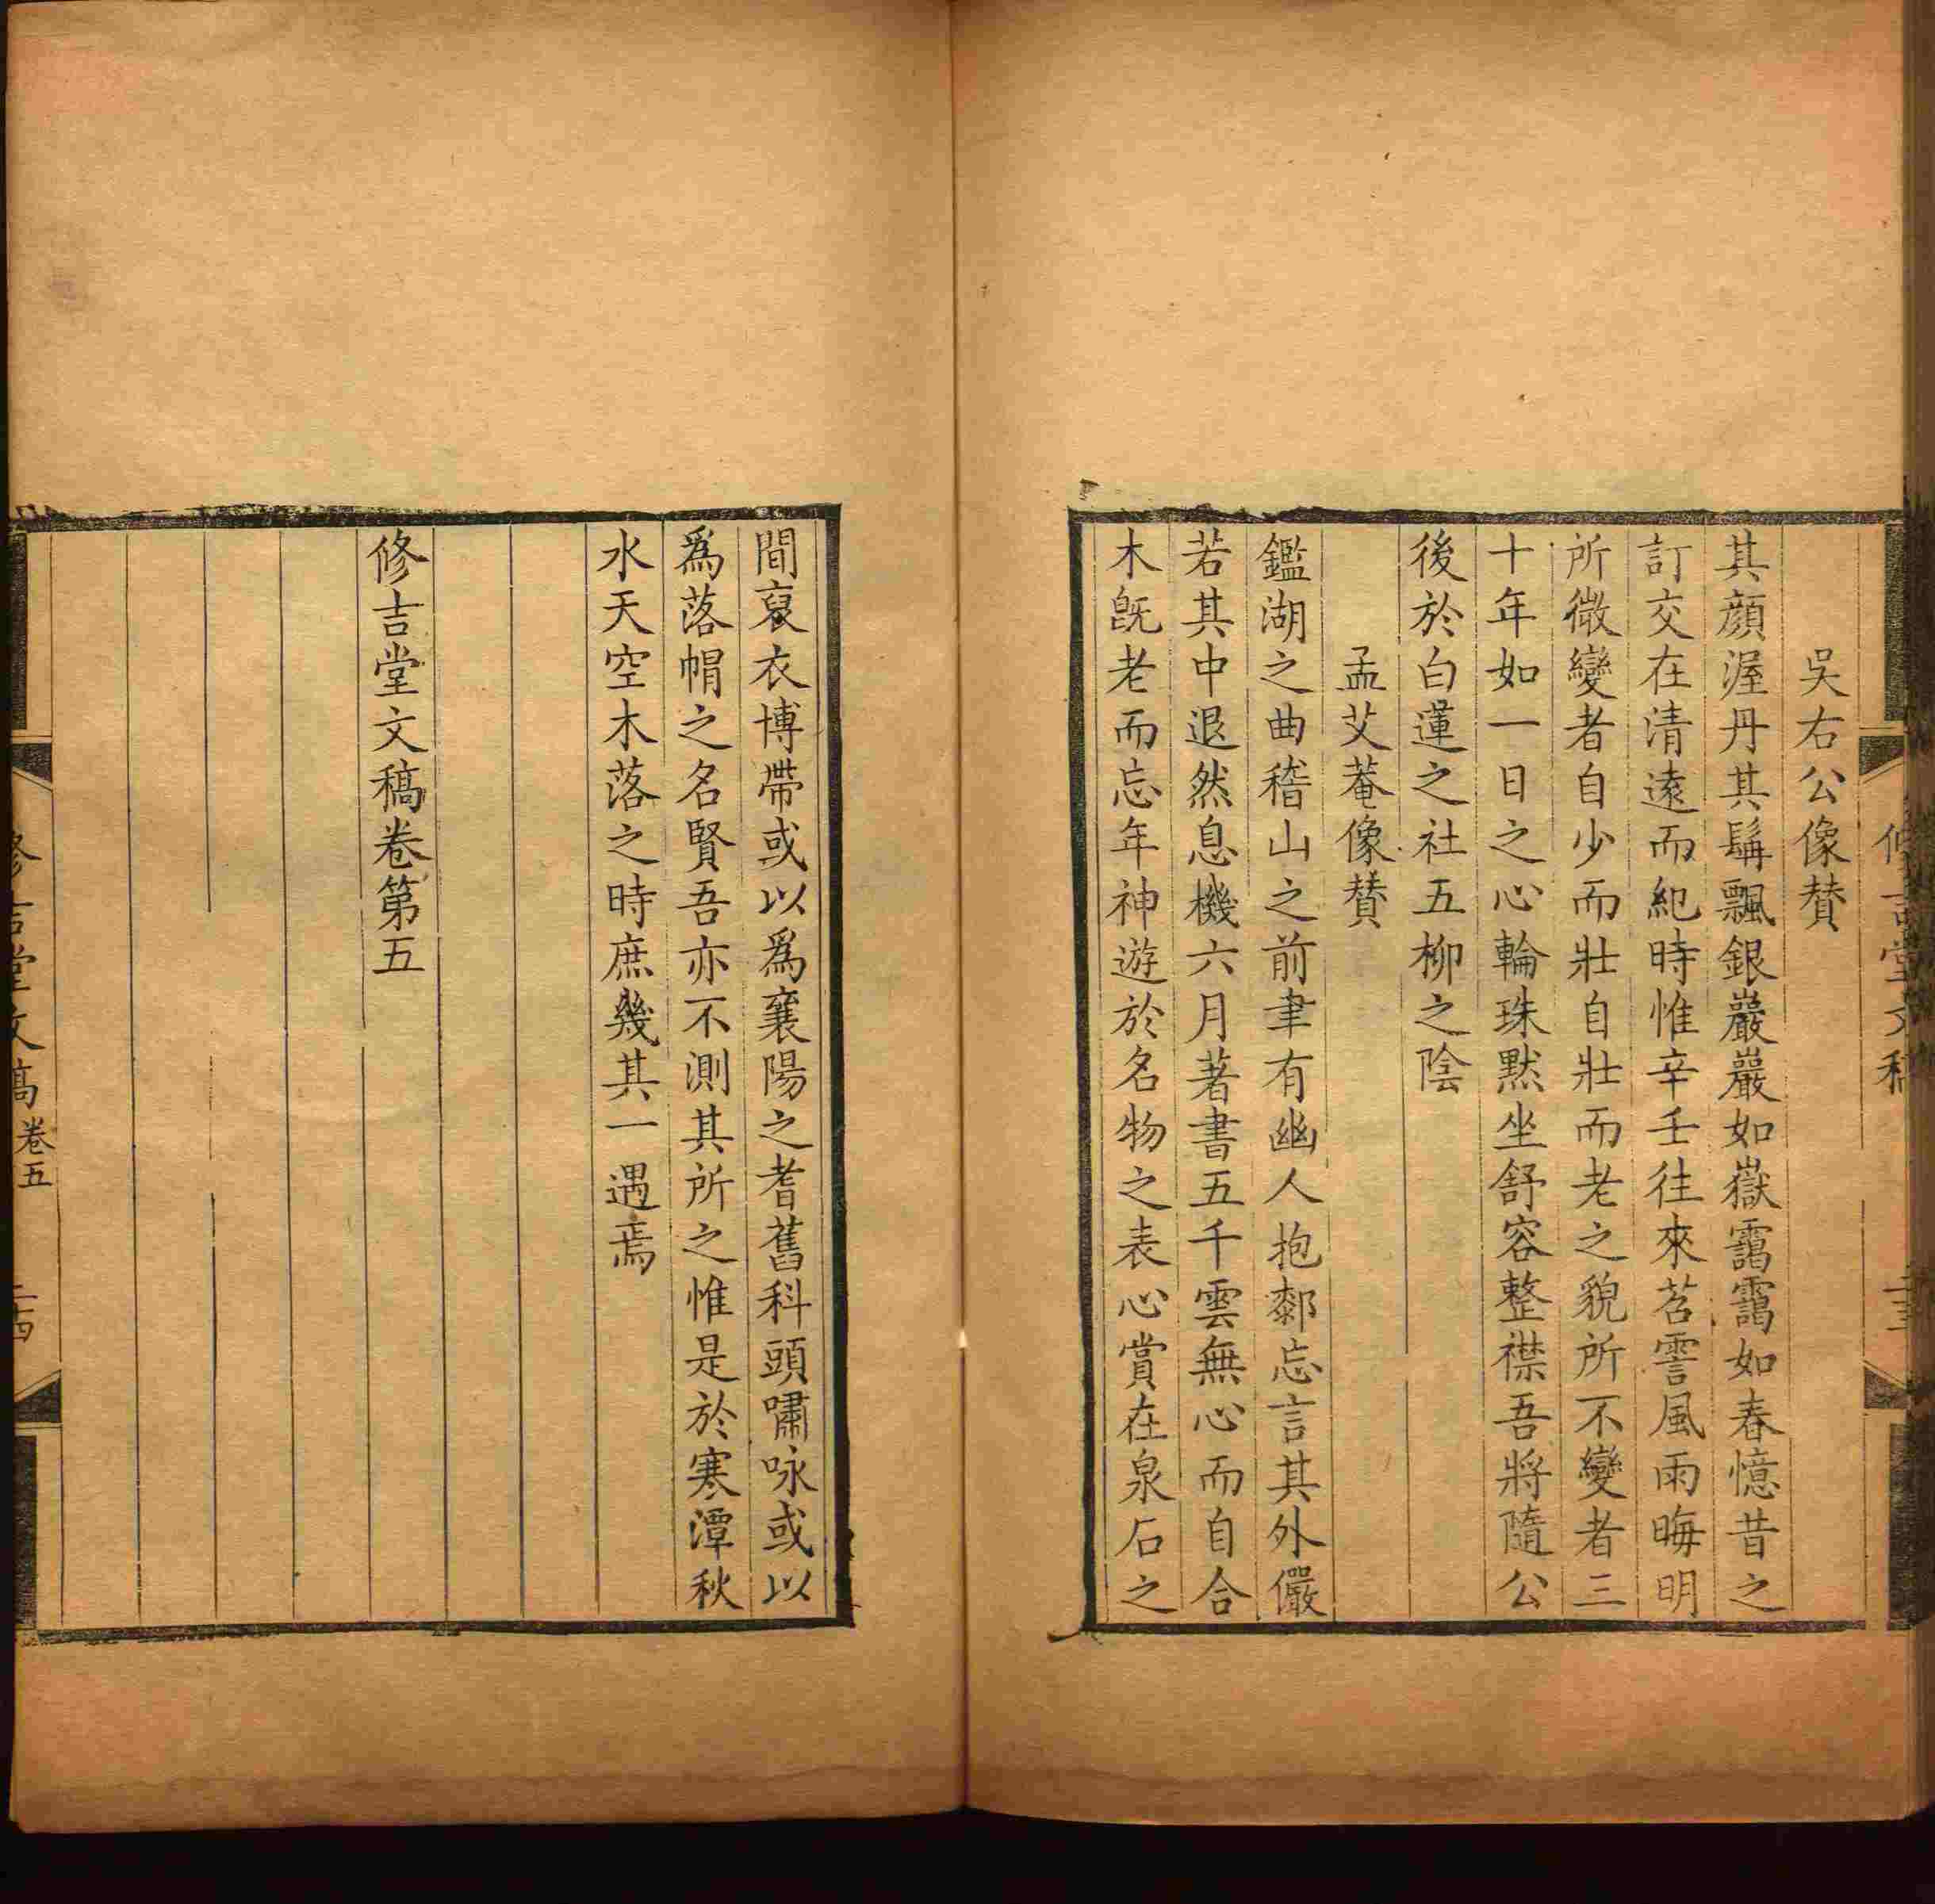 修吉堂文稿
吳右公像贊
其顏渥丹其鬚飄銀巖巖如嶽靄靄如春憶昔之
訂交在清遠而紀時惟辛壬往來苕霅風雨晦明
所微變者自少而壯自壯而老之貌所不變者三
十年如一日之心輪珠默坐舒容整襟吾將隨公
後於白蓮之社五柳之陰
孟艾菴像贊
鑑湖之曲稽山之前聿有幽人抱鄰忘言其外儼
若其中退然息機六月著書五千雲無心而自合
木旣老而忘年神遊於名物之表心賞在泉石之
間裒衣博帶或以爲襄陽之耆舊科頭嘯咏或以
爲落帽之名賢吾亦不測其所之惟是於寒潭秋
水天空木落之時庶幾其一遇焉
修吉堂文稿卷第五
修吉堂文稿 卷五 二十四